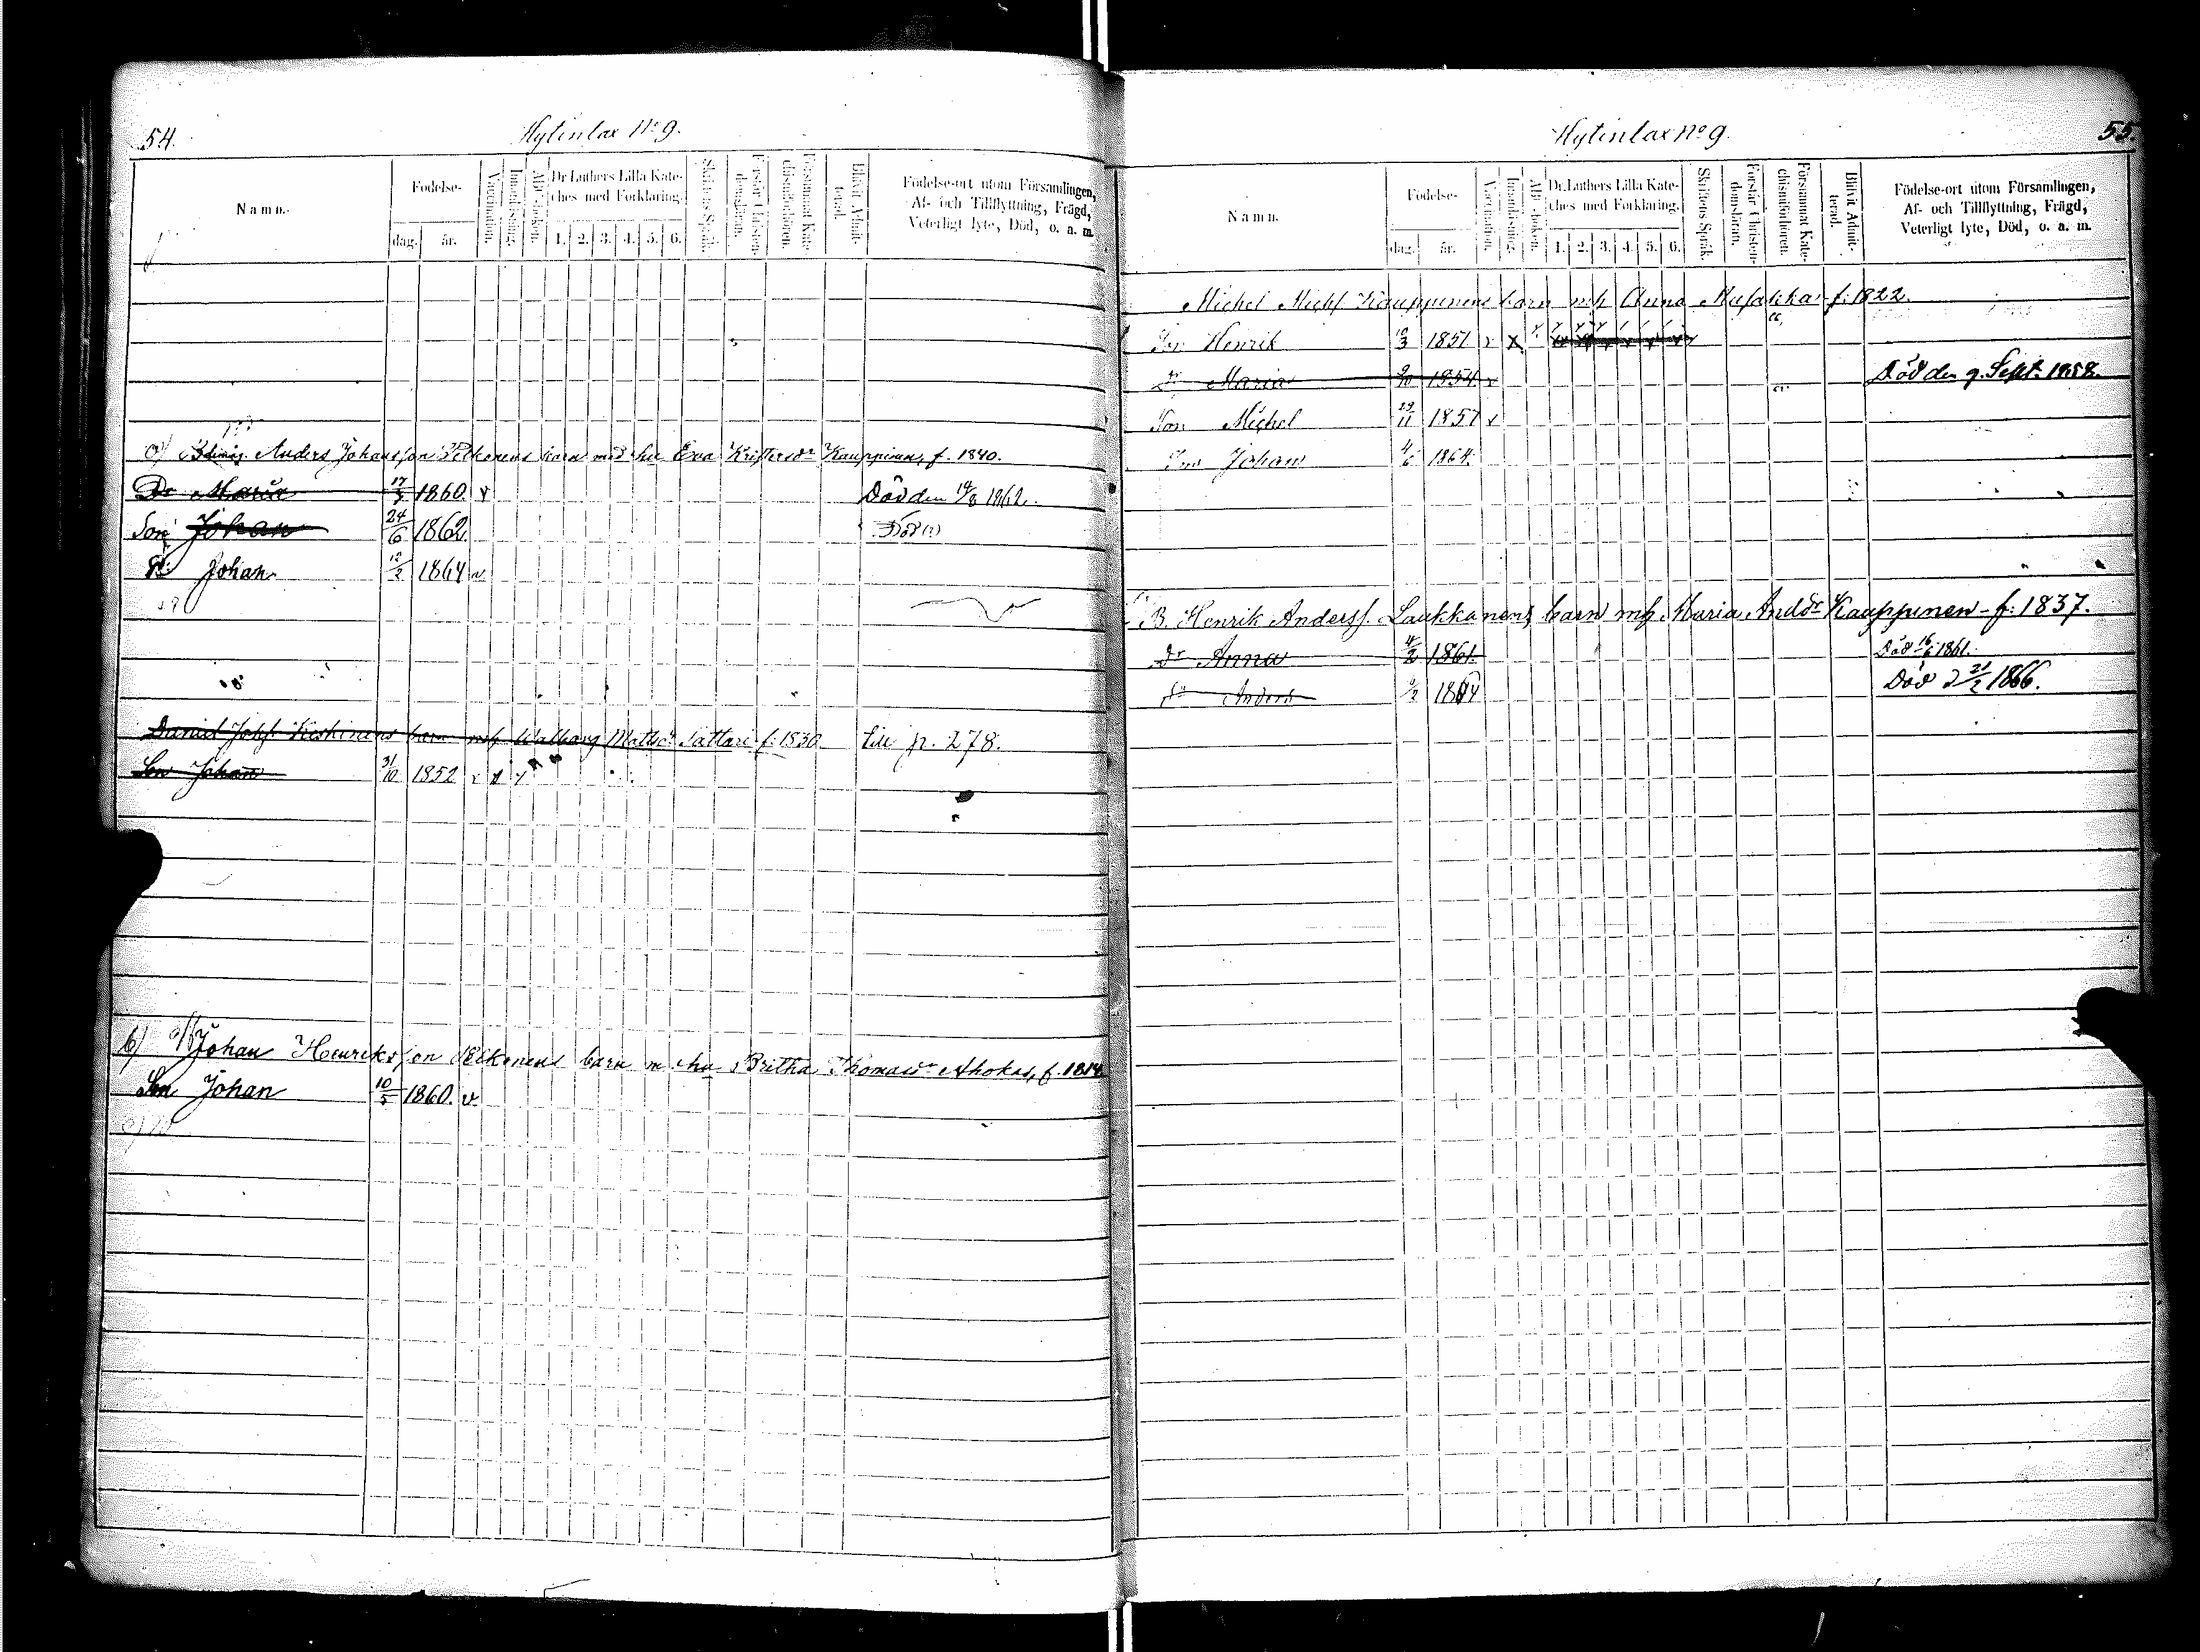 54.
Hytinlax No 9.
Namn.
Födelse-
dag. år.
Vaccination.
Innanläsning.
Abc-boken.
Dr Luthers Lilla Kate-
ches med Förklaring.
1. 2. 3. 4. 5. 6.
Skriftens Språk.
Förstår Christen-
domsläran.
Försummat Kate-
chismiförhören.
Blifvit Admit-
terad.
Födelse-ort utom Församlingen,
Af- och Tillflyttning, Frägd,
Veterligt lyte, Död, o. a. m.
a) Anders Johansson Pelkonens barn med hu Eva Kristersdr Kauppinen, f. 1840.
Dr Maria 17/3 1860. v Död den 14/8 1862.
Son Johan 24/6 1862. Död
Sn Johan 12/2 1864 v
Daniel Johss Keskinens barn mh Walborg Mattsdr Sattari f: 1830 till p. 278.
Son Johan 31/10 1852 v x v
b) Johan Henriksson Pelkonens barn m hu Britha Thomasdr Ahokas, f. 1814
Son Johan 10/5 1860. v.
55.
Hytinlax No 9.
Namn.
Födelse-
dag. år.
Vaccination.
Innanläsning.
Abc-boken.
Dr. Luthers Lilla Kate-
ches med Förklaring.
1. 2. 3. 4. 5. 6.
Skriftens Språk.
Förstår Christen-
domsläran.
Försummat Kate-
chismiförhören.
Blifvit Admit-
terad.
Födelse-ort utom Församlingen,
Af- och Tillflyttning, Frägd,
Veterligt lyte, Död, o. a. m.
Michel Michss Kauppinens barn mh Anna Musakka f: 1822.
Son Henrik 12/3 1851 v x
Dr Maria 9/10 1854 v Död den 9. Sept. 1858.
Son Michel 29/11 1857 v
Son Johan 4/6 1864.
B. Henrik Anderss. Laukkanens barn mh. Maria Andsdr Kauppinen - f: 1837.
Dr Anna 4/2 1861. Död 16/6 1861.
Sn Anders 9/2 1864 Död d 21/2 1866.